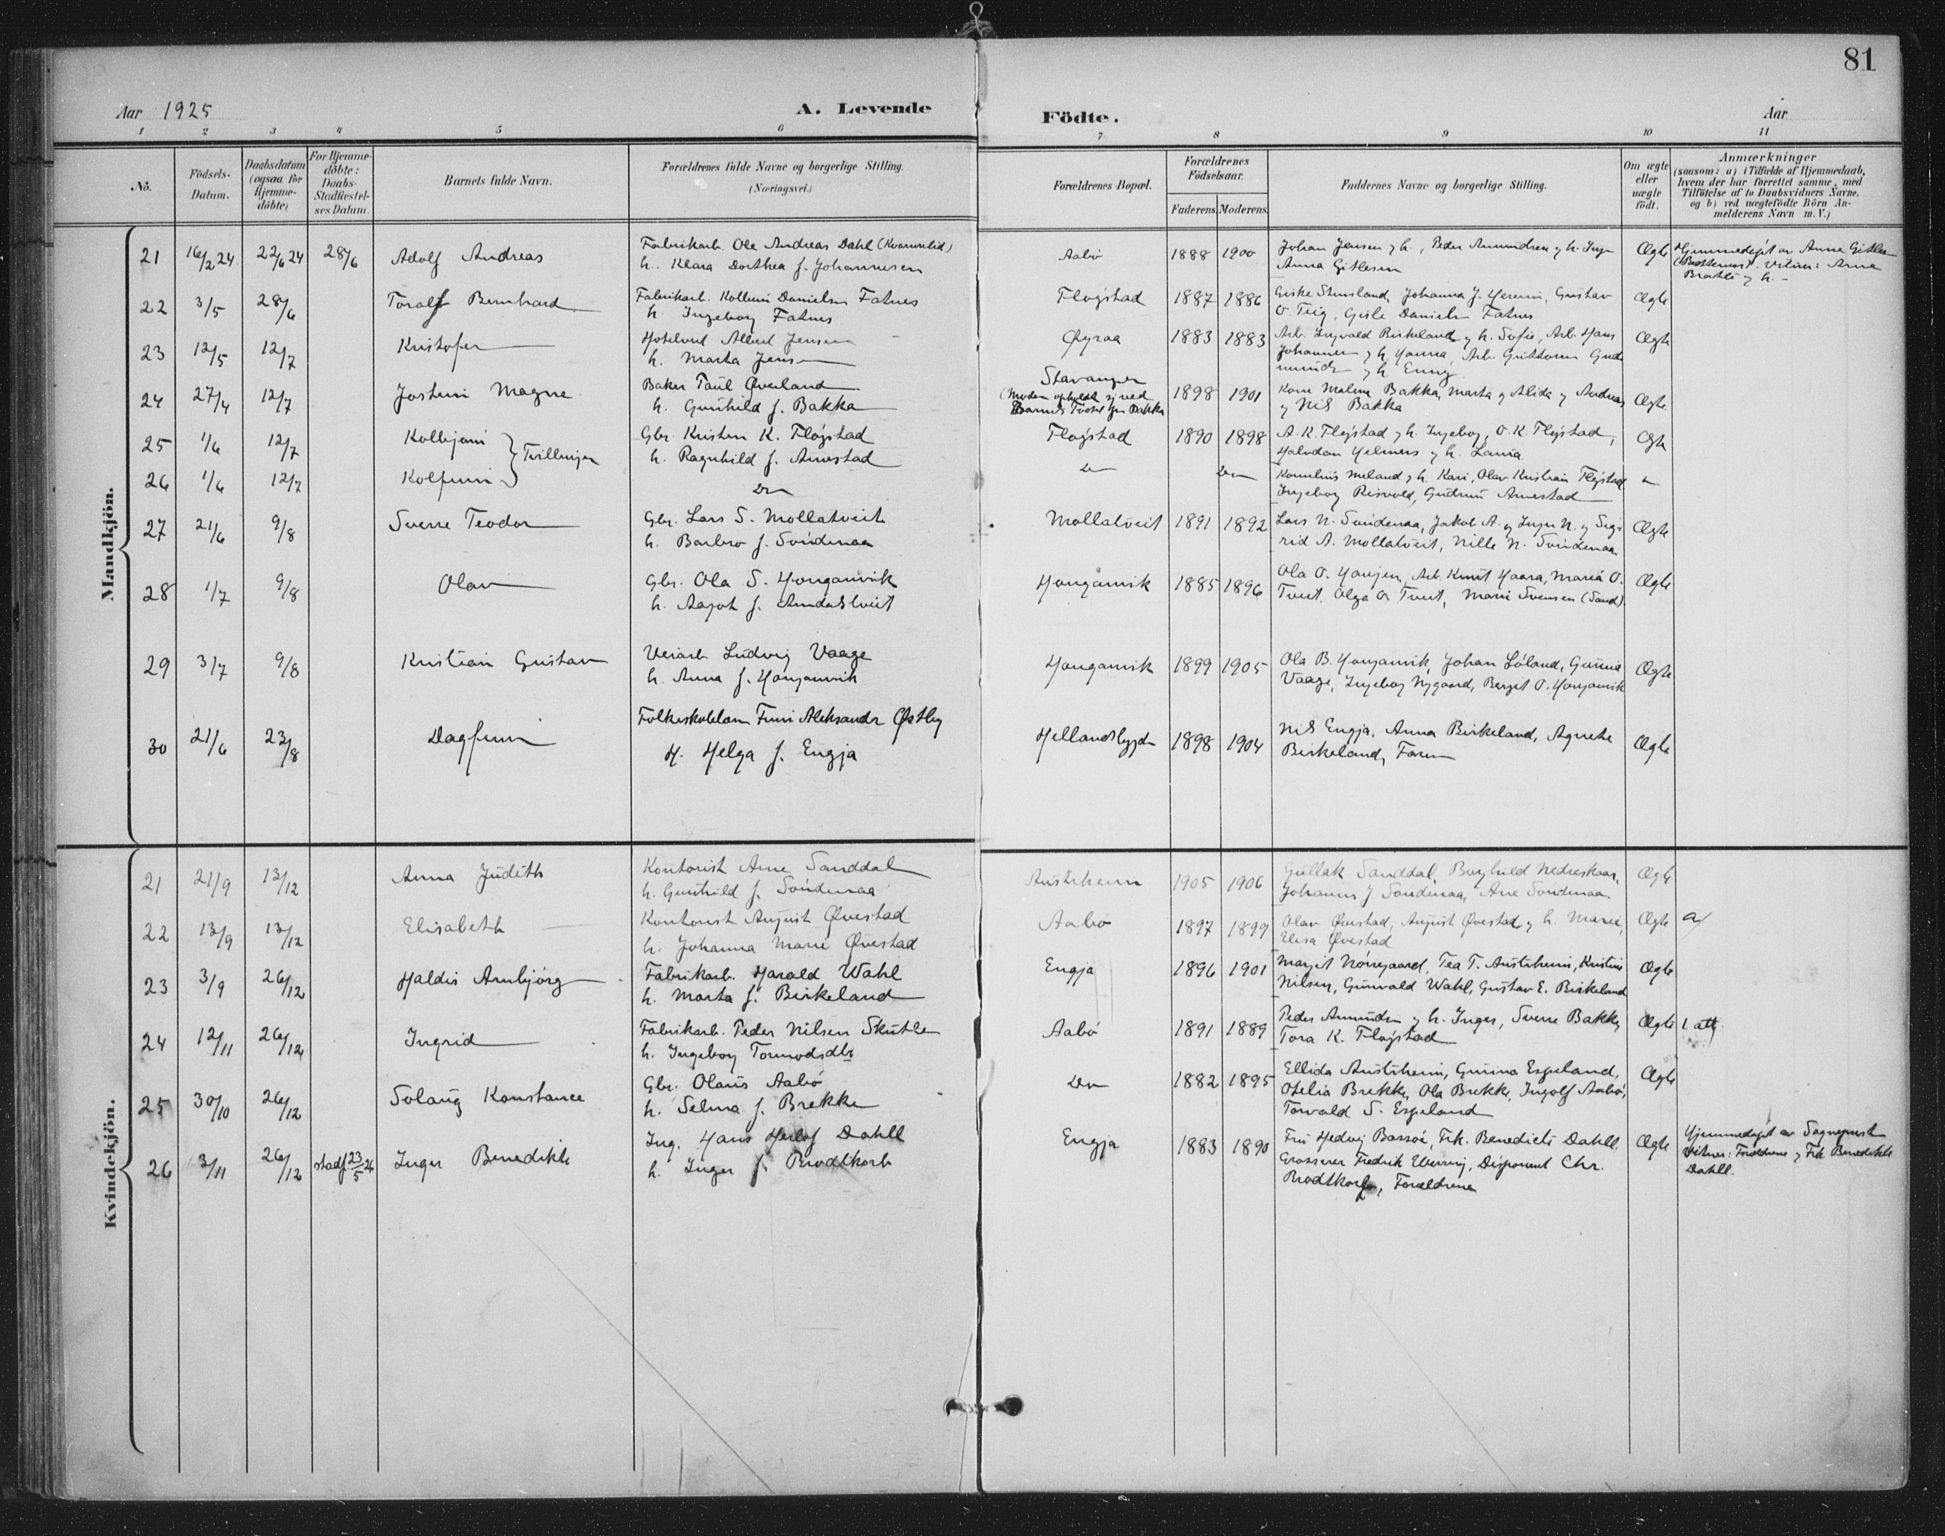 81
Aar 1925
A. Levende
Födte.
Aar
1 2 3 4 5 6 7 8 9 10 11
No.
Födsels-
Datum.
Daabsdatum
(ogsaa for
Hjemme-
döbte)
For Hjemme-
döbte:
Daabs-
Stadfæstel-
ses Datum.
Barnets fulde Navn.
Forældrenes fulde Navne og borgerlige Stilling.
(Næringsvei.)
Forældrenes Bopæl.
Forældrenes
Födselsaar.
Faderens. Moderens.
Faddernes Navne og borgerlige Stilling.
Om ægte
eller
uægte
födt.
Anmærkninger
(saasom: a) i Tilfælde af Hjemmedaab,
hvem der har forrettet samme, med
Tilföielse af to Daabsvidners Navne,
og b) ved uægtefödte Börn An-
melderens Navn m. V.)
Mandkjön.
21 16/2 24 22/6 24 28/6 Adolf Andreas
Fabrikarb. Ole Andreas Dahl (Kvammelid)
h. Klara Dorthea f. Johannesen
Aabø 1888 1900
Johan Jensen og h., Peder Amundsen og h. Inga
Anna Gitlesen
Ægte
Hjemmedøpt av Anna Gitlesen
Vitner: Arne
Bratli og h.
22 3/5 28/6 Toralf Bernhard
Fabrikarb. Kolbein Danielsen Fatnes
h. Ingeborg Fatnes
Fløgstad 1887 1886
Johanna J. Gustav
O. Teig, Gisle Danielsen Fatnes
Ægte
23 12/5 12/7 Kristofer
Hotelvert Albert Jensen
h. Marta Jensen
Øyraa 1883 1883
Arb. Ingvald Birkeland og h. Sofie, Arb. Hans
Johannesen og h. Hanna, Arb. Guttorm Gud-
mundsen og h. Enny
Ægte
24 27/4 12/7 Jostein Magne
Baker Paul Øverland
h. Gunhild f. Bakka
Stavanger
(Moderen opholdt sig ved
Barnets Fødsel hos Bakka
1898 1901
Kone Malene Bakka, Marta og Alida og Andreas
og Nils Bakka
Ægte
25 1/6 12/7 Kolbjørn
Tvillinger
Gbr. Kristen K. Fløgstad
h. Ragnhild f. Arnestad
Fløgstad 1890 1898
A. K. Fløgstad og h. Ingeborg, O. K. Fløgstad,
Halvdan Helmers og h. Laura
Ægte
26 1/6 12/7 Kolfinn
Do
Do Do
Kornelius Meland og h. Kari, Olav Kristian Fløgstad
Ingeborg Risvold, Gudrun Arnestad
27 21/6 9/8 Sverre Teodor
Gbr. Lars S. Mollatveit
h. Barbro f. Søndenaa
Mollatveit 1891 1892
Lars N. Søndenaa, Jakob A. og Inger N. og Sig-
rid A. Mollatveit, Nille N. Søndenaa
Ægte
28 1/7 9/8 Olav
Gbr. Ola S. Honganvik
h. Aagot f. Amdalstveit
Honganvik 1885 1896
Ola O. Haugen, Arb. Knut Haara, Maria O.
Tveit, Olga O. Tveit, Marie Svensen (Sand).
Ægte
29 3/7 9/8 Kristian Gustav
Veiarb. Ludvig Vaage
h. Anna f. Honganvik
Honganvik 1899 1905
Ola B. Honganvik, Johan Løland, Gunna
Vaage, Ingeborg Nygaard, Berget O. Honganvik
Ægte
30 21/6 23/8 Dagfinn
Folkeskolelærer Finn Aleksander Østby
H. Helga f. Engja
Hellandsbygd 1898 1904
Nils Engja, Anna Birkeland, Agnete
Birkeland, Faren
Ægte
Kvindekjön.
21 21/9 13/12 Anna Judith
Kontorist Arne Sanddal
h. Gunhild f. Søndenaa
Austrheim 1905 1906
Gullak Sanddal, Borghild Nedreskaar,
Johannes J Søndenaa, Arne Søndenaa
Ægte
22 13/9 13/12 Elisabeth
Kontorist August Øvestad
h. Johanna Marie Øvestad
Aabø 1897 1899
Olav Øvestad, August Øvestad og h. Marie,
Elisa Øvestad
Ægte a/
23 3/9 26/12 Haldis Arnbjørg
Fabrikarb. Harald Wahl
h. Marta f. Birkeland
Engja 1896 1901
Margit Nørregaard, Tea T. Austrheim, Kristine
Nilsen, Gunvald Wahl, Gustav E. Birkeland
Ægte
24 12/11 26/12 Ingrid
Fabrikarb. Peder Nilsen Skutle
h. Ingeborg Tormodsdtr
Aabø 1891 1889
Peder Amundsen og h. Inger, Sverre Bakke,
Tora K. Fløgstad
Ægte 1 att.
25 30/10 26/12 Solaug Konstance
Gbr. Olaus Aabø
h. Selma f. Brekke
Do 1882 1895
Ellida Austrheim, Gunna Espeland,
Ofelia Brekke, Ola Brekke, Ingolf Aabø,
Torvald S. Espeland
Ægte
26 3/11 26/12 stadf. 23/5 26 Inger Benedikte
Ing. Hans Herlof Dahll
h. Inger f. Brodtkorb
Engja 1883 1890
Fru Hedvig Bassøe, Frk. Benedicte Dahll
Grosserer Fredrik Disponent Chr.
Brodtkorb, Forældrene
Ægte
Hjemmedøpt av Sogneprest
Vitner: Forældrene og Frk Benedikte
Dahll.